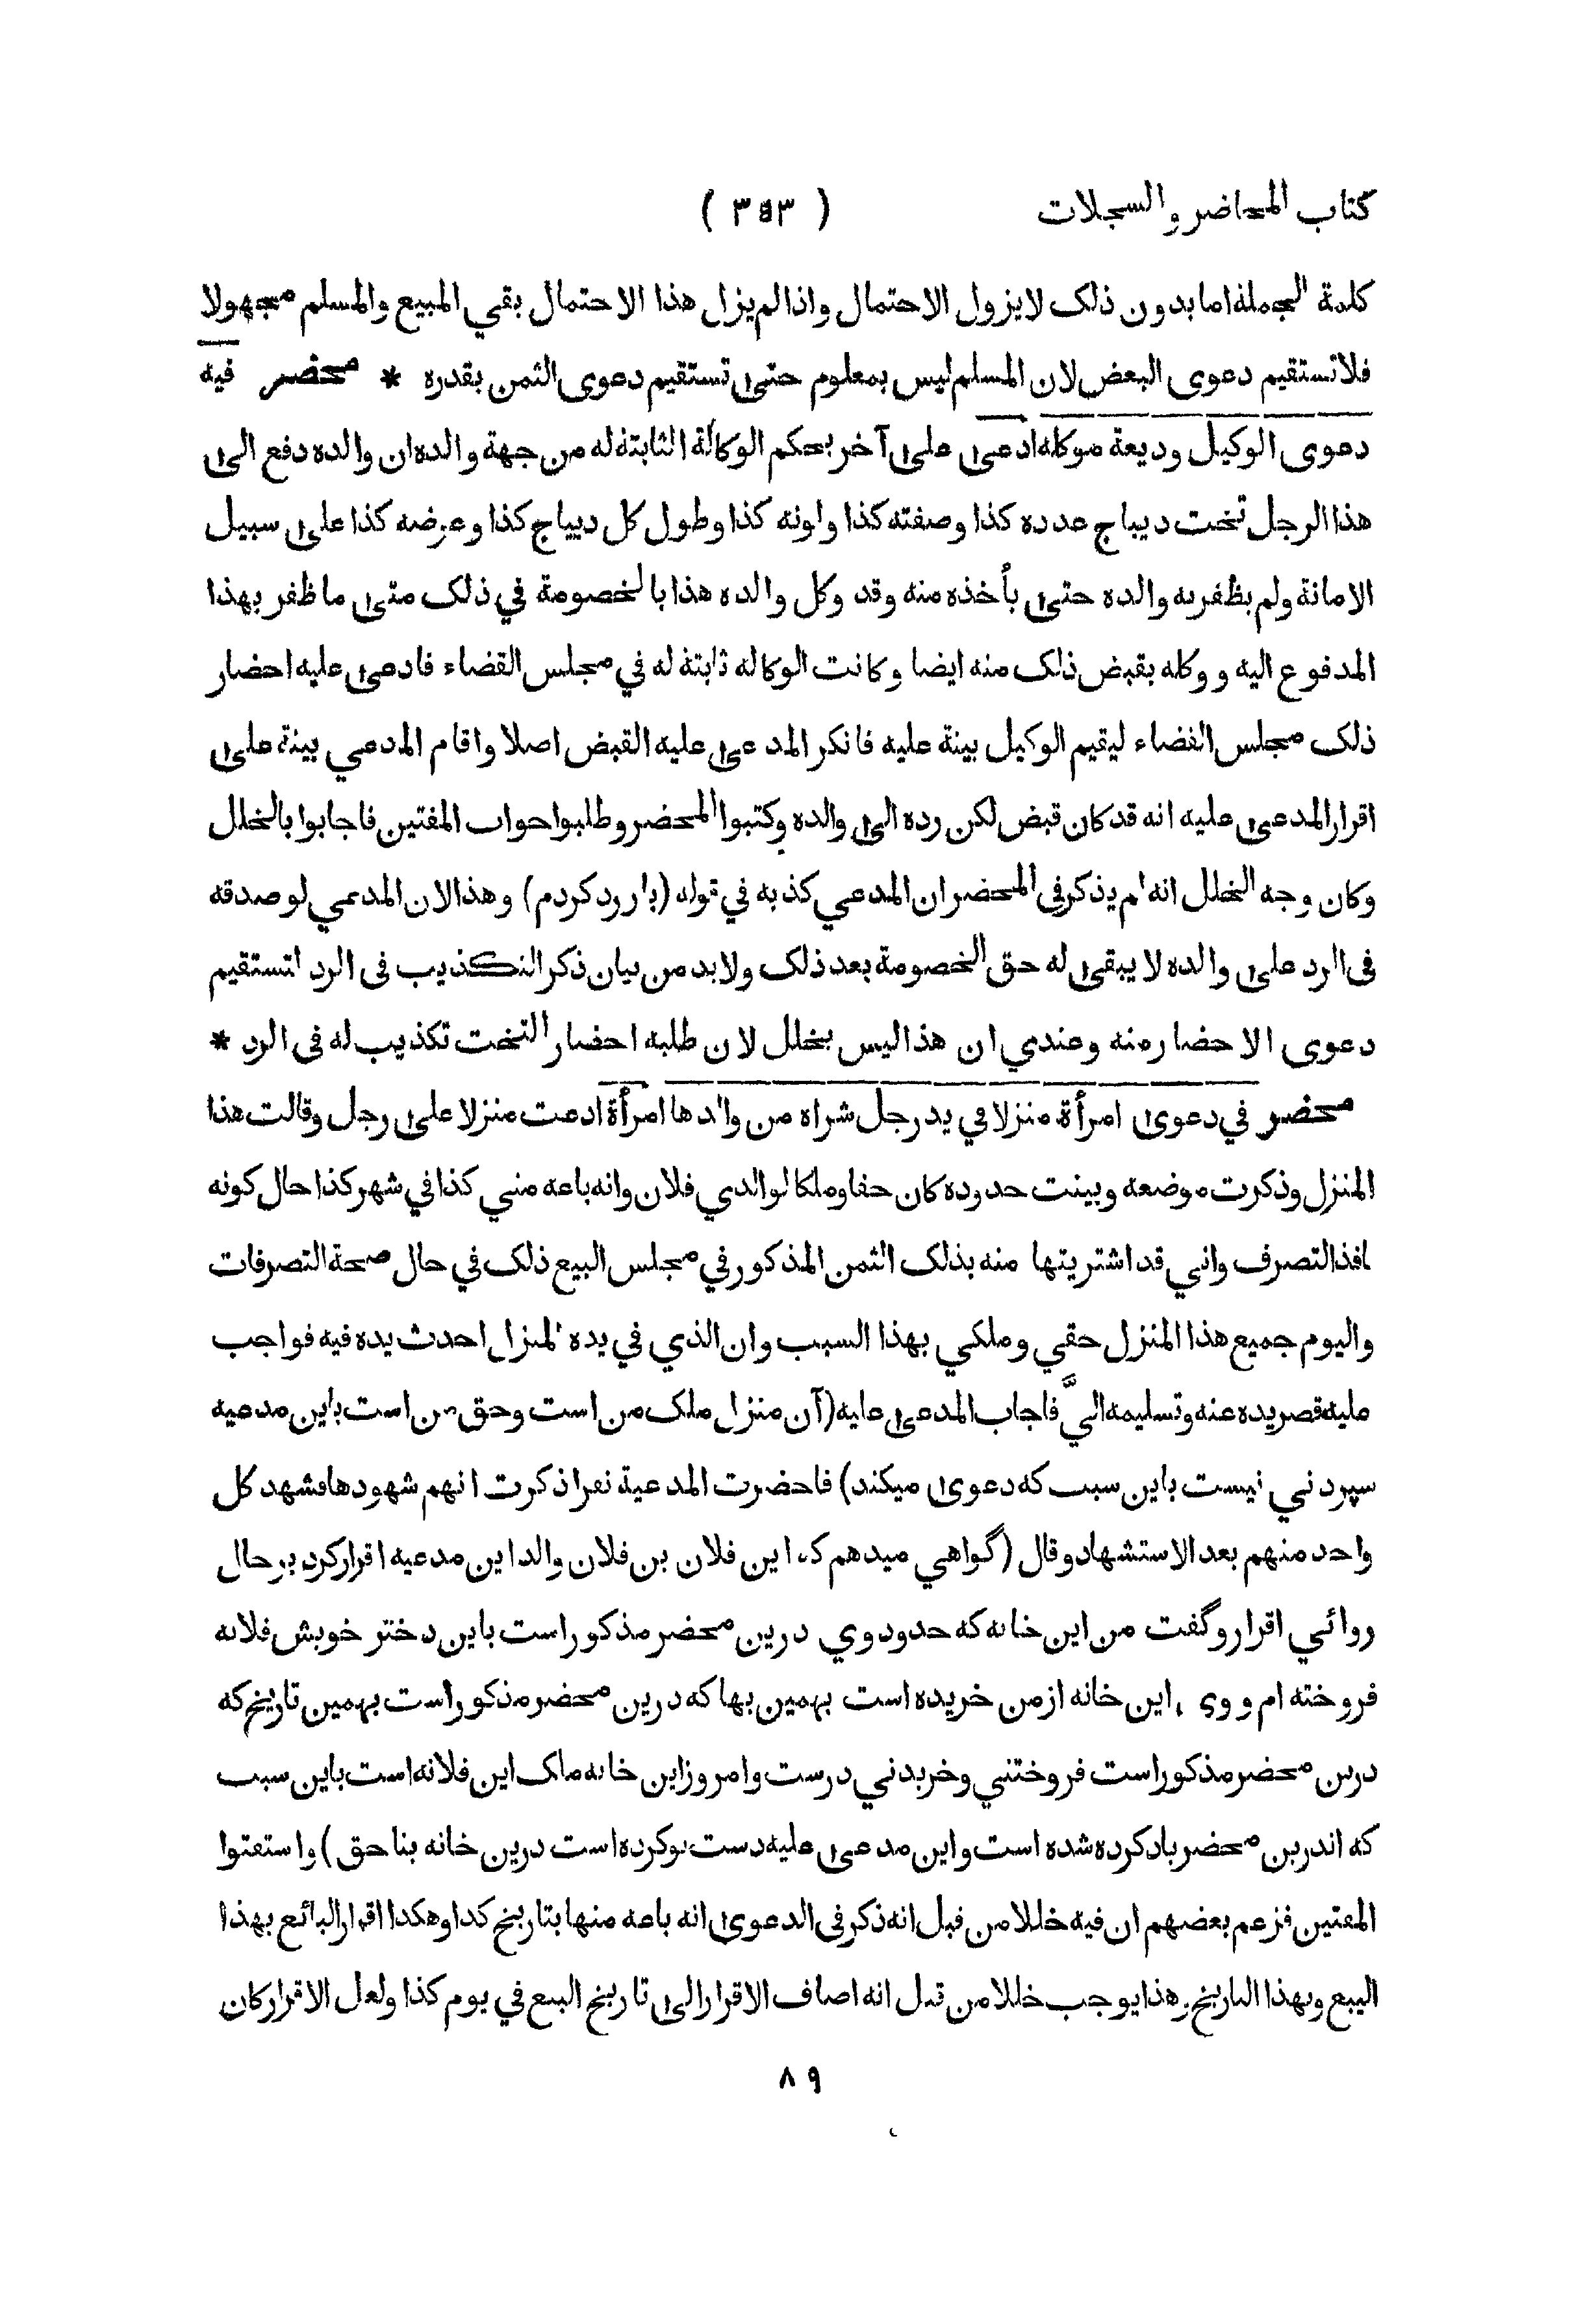 كتاب المحاضر والسجلات ( ٣٥٣ )
كلمة الجملة اما بدون ذلك لا يزول الاحتمال واذا لم يزل هذا الاحتمال بقي المبيع والمسلم مجهولا
فلا تستقيم دعوى البعض لان المسلم ليس بمعلوم حتى تستقيم دعوى الثمن بقدره * محضر فيه
دعوى الوكيل وديعة موكله ادعى على آخر بحكم الوكالة الثابتة له من جهة والده ان والده دفع الى
هذا الرجل تخت ديباج عدده كذا وصفته كذا ولونه كذا وطول كل ديباج كذا وعرضه كذا على سبيل
الامانة ولم يظفر به والده حتى يأخذه منه وقد وكل والده هذا بالخصومة في ذلك متى ما ظفر بهذا
المدفوع اليه ووكله بقبض ذلك منه ايضا وكانت الوكالة ثابتة له في مجلس القضاء فادعى عليه احضار
ذلك مجلس القضاء ليقيم الوكيل بينة عليه فانكر المدعى عليه القبض اصلا واقام المدعي بينة على
اقرار المدعى عليه انه قد كان قبض لكن رده الى والده وكتبوا المحضر وطلبوا جواب المفتين فاجابوا بالخلل
وكان وجه الخلل انه لم يذكر في المحضر ان المدعي كذبه في قوله (باز رد كردم) وهذا لان المدعي لو صدقه
في الرد على والده لا يبقى له حق الخصومة بعد ذلك ولا بد من بيان ذكر التكذيب في الرد لتستقيم
دعوى الاحضار منه وعندي ان هذا ليس بخلل لان طلبه احضار التخت تكذيب له في الرد *
محضر في دعوى امرأة منزلا في يد رجل شراه من والدها امرأة ادعت منزلا على رجل وقالت هذا
المنزل وذكرت موضعه وبينت حدوده كان حقا وملكا لوالدي فلان وانه باعه مني كذا في شهر كذا حال كونه
نافذ التصرف واني قد اشتريتها منه بذلك الثمن المذكور في مجلس البيع ذلك في حال صحة التصرفات
واليوم جميع هذا المنزل حقي وملكي بهذا السبب وان الذي في يده المنزل احدث يده فيه فواجب
عليه قصر يده عنه وتسليمه اليّ فاجاب المدعى عليه (آن منزل ملك من است وحق من است باين مدعيه
سپردني نيست باين سبب كه دعوى ميكند) فاحضرت المدعية نفرا ذكرت انهم شهودها فشهد كل
واحد منهم بعد الاستشهاد وقال (گواهي ميدهم كه اين فلان بن فلان والد اين مدعيه اقرار كرد بر حال
روائي اقرار وگفت من اين خانه كه حدود وي درين محضر مذكور است باين دختر خويش فلانه
فروخته ام ووى اين خانه از من خريده است بهمين بها كه درين محضر مذكور است بهمين تاريخ كه
درين محضر مذكور است فروختني وخريدني درست وامروز اين خانه ملك اين فلانه است باين سبب
كه اندرين محضر ياد كرده شده است واين مدعى عليه دست نو كرده است درين خانه بنا حق) واستفتوا
المفتين فزعم بعضهم ان فيه خللا من قبل انه ذكر في الدعوى انه باعه منها بتاريخ كذا وهكذا اقرار البائع بهذا
البيع وبهذا التاريخ وهذا يوجب خللا من قبل انه اضاف الاقرار الى تاريخ البيع في يوم كذا ولعل الاقرار كان
٨٩